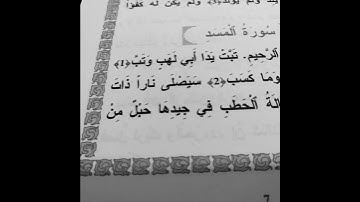 يلد ولم يولد﴿3﴾ ولم يكن له كفؤا
سُورَةُ ٱلْمَسَدِ
ٱلرَّحِيمِ. تَبَّتْ يَدَا أَبِي لَهَبٍ وَتَبَّ﴿1﴾
وَمَا كَسَبَ﴿2﴾ سَيَصْلَى نَاراً ذَاتَ
الَةُ ٱلْحَطَبِ فِي جِيدِهَا حَبْلٌ مِنْ